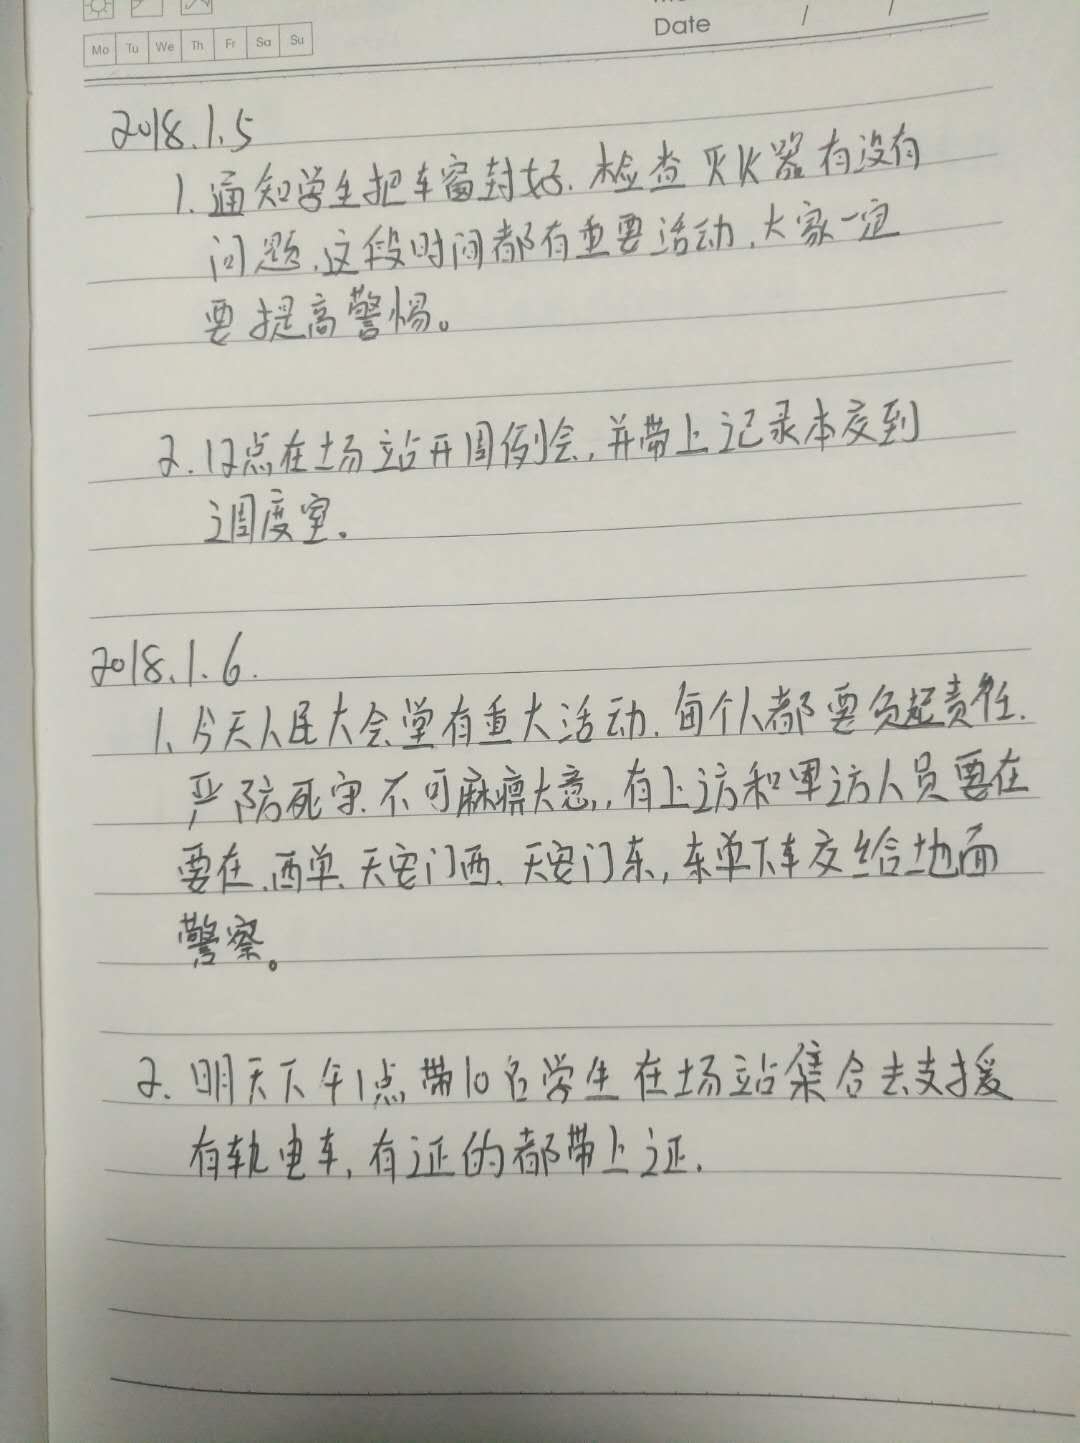 Mo Tu We Th Fr Sa Su
Date / /
2018.1.5
1. 通知学生把车窗封好. 检查灭火器有没有
问题,这段时间都有重要活动,大家一定
要提高警惕。
2. 12点在场站开周例会,并带上记录本交到
调度室。
2018.1.6.
1、今天人民大会堂有重大活动.每个人都要负起责任.
严防死守.不可麻痹大意,,有上访和军访人员要在
要在.西单、天安门西、天安门东,东单下车交给地面
警察。
2. 明天下午1点带10名学生在场站集合去支援
有轨电车,有证的都带上证.